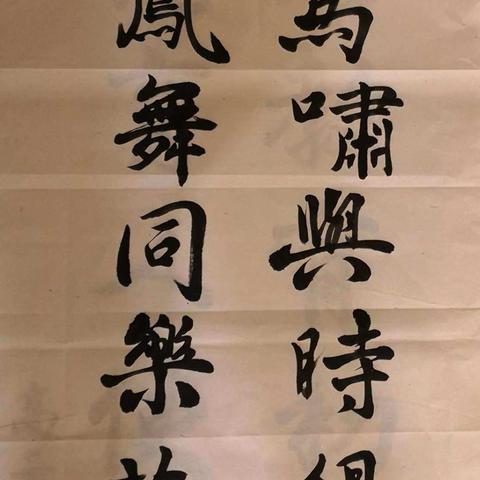 馬嘯與時
鳳舞同樂